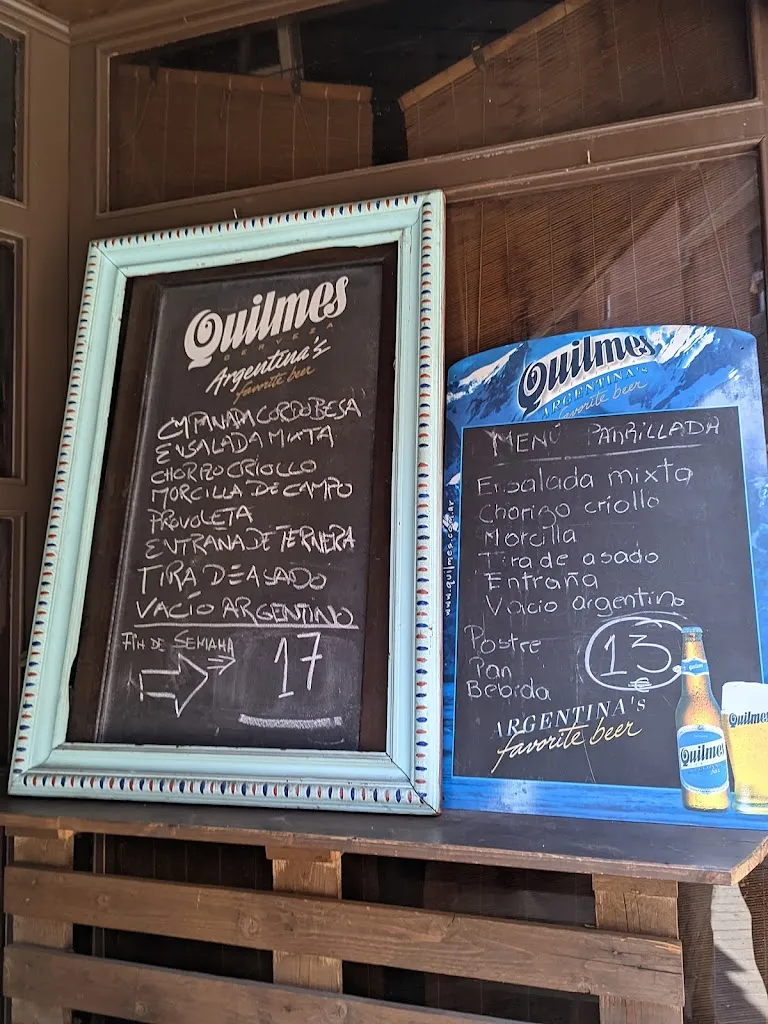 Quilmes
CERVEZA
Argentina's
favorite beer
EMPANADA CORDOBESA
ENSALADA MIXTA
CHORIZO CRIOLLO
MORCILLA DE CAMPO
PROVOLETA
ENTRAÑA DE TERNERA
TIRA DE ASADO
VACÍO ARGENTINO
FIN DE SEMANA
17
Quilmes
ARGENTINA'S
favorite beer
MENÚ PARRILLADA
Ensalada mixta
Chorizo criollo
Morcilla
Tira de asado
Entraña
Vacio argentino
Postre
Pan
Bebida
13
ARGENTINA'S
favorite beer
www.quilmes.com.ar
Quilmes
Quilmes